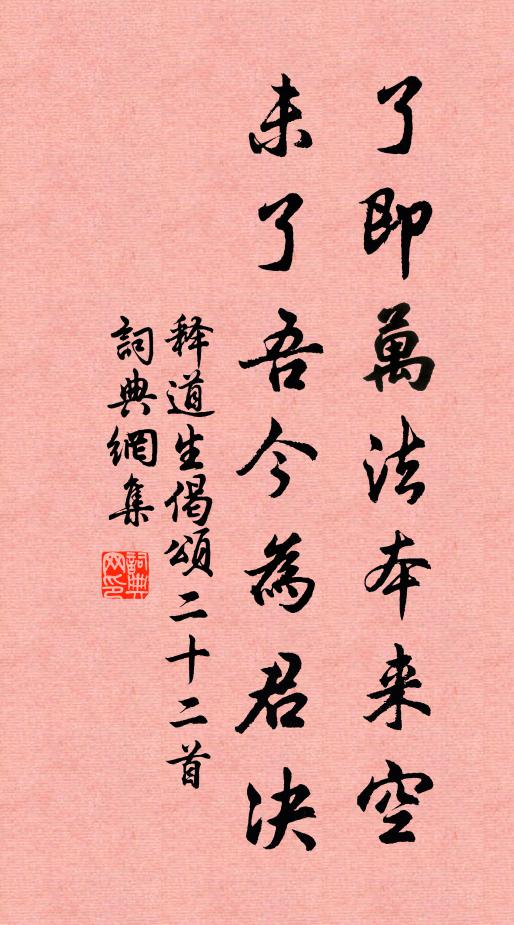 了即萬法本来空
未了吾今為君決
释道生偈頌二十二首
詞典網集
詞典
网印